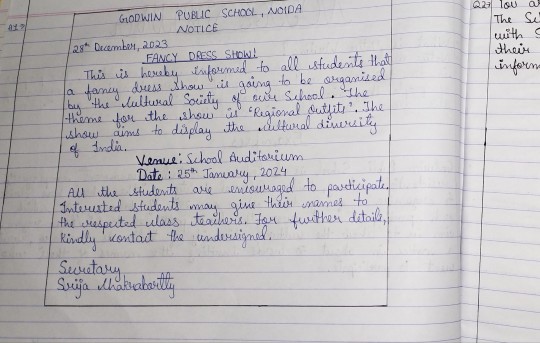 GODWIN PUBLIC SCHOOL, NOIDA
NOTICE
28th December, 2023
FANCY DRESS SHOW!
This is hereby informed to all students that
a fancy dress show is going to be organised
by the Cultural Society of our School. The
theme for the show is 'Regional Outfits'. The
show aims to display the cultural diversity
of India.
Venue: School Auditorium
Date: 25th January, 2024
All the students are encouraged to participate.
Interested students may give their names to
the respected class teachers. For further details,
kindly contact the undersigned.
Secretary
Srija Chakrabartty
22) You
The
with
their
inform